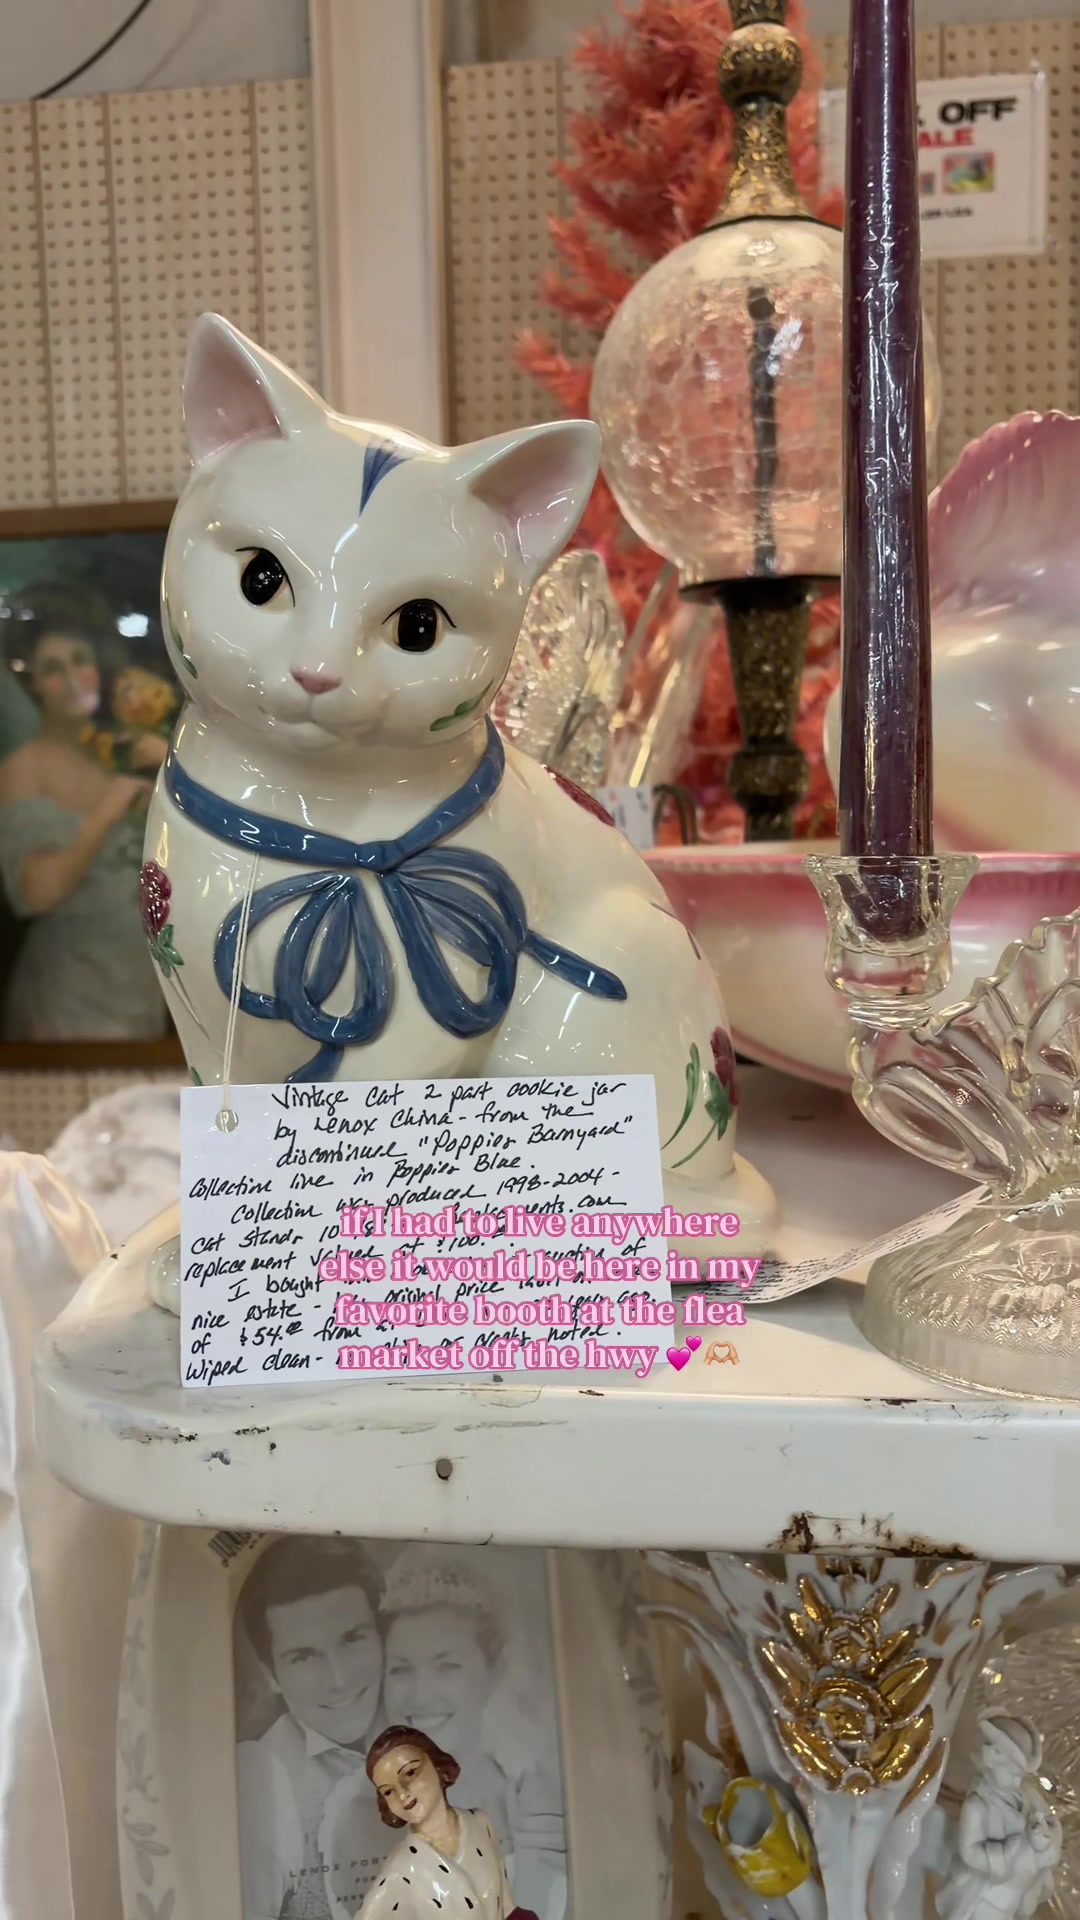 OFF
ALE
Vintage Cat 2 part cookie jar
by Lenox China - from the
discontinued "Poppies Barnyard"
Collection line in Poppies Blue.
Collection was produced 1998-2004 -
Cat stands
replacement valued at $100.
I bought
nice estate - original price
of $54.00 from
Wiped clean - noted.
if I had to live anywhere
else it would be here in my
favorite booth at the flea
market off the hwy 💕🫶🏼
LENOX